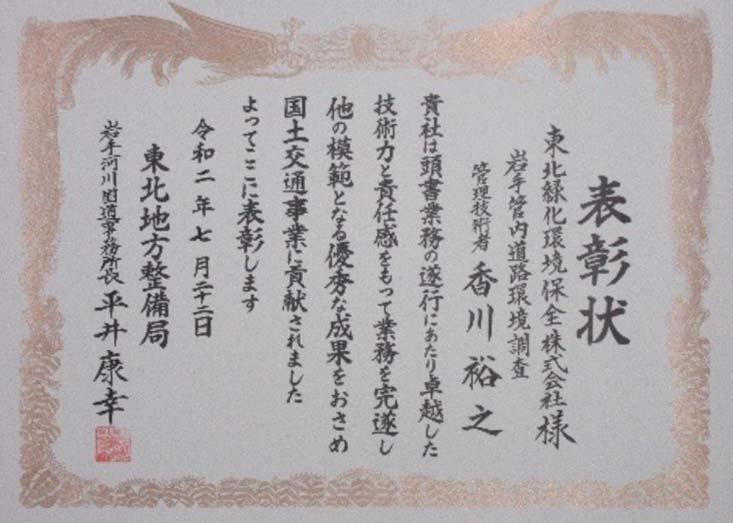 表彰状
東北緑化環境保全株式会社様
岩手管内道路環境調査
管理技術者 香川裕之
貴社は頭書業務の遂行にあたり卓越した
技術力と責任感をもって業務を完遂し
他の模範となる優秀な成果をおさめ
国土交通事業に貢献されました
よってここに表彰します
令和二年七月二十二日
東北地方整備局
岩手河川国道事務所長 平井康幸